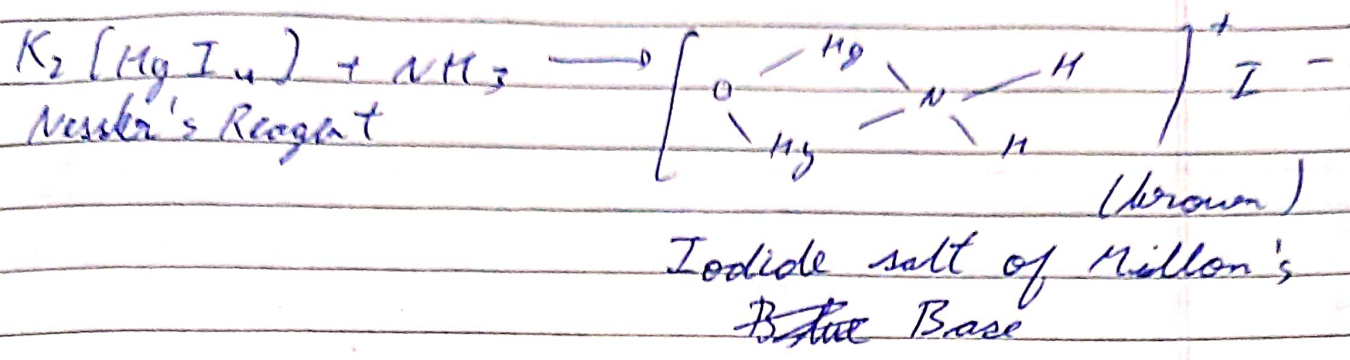 K₂[HgI₄] + NH₃ ⟶ [O Hg Hg N H H]⁺ I⁻
Nessler's Reagent
(brown)
Iodide salt of Millon's
Base